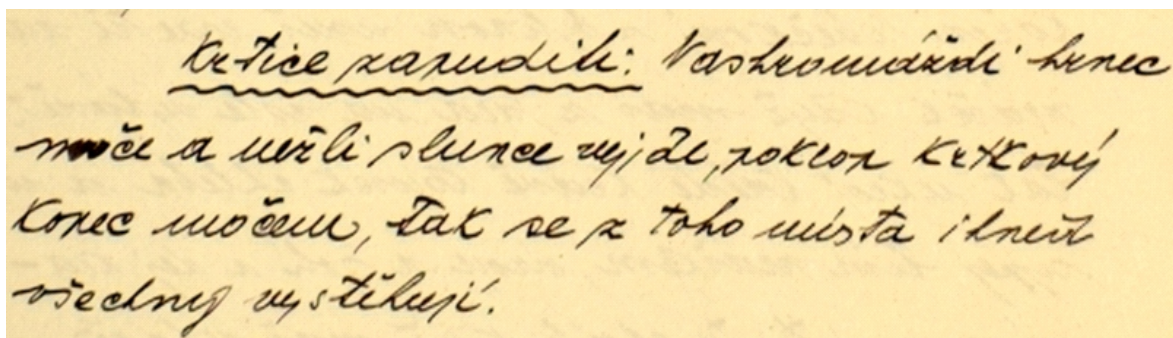 Krtice zapuditi: Nashromáždi hrnec
moče a nežli slunce vyjde, pokrop krtkový
kopec močem, tak se z toho místa ihned
všechny vystěhují.